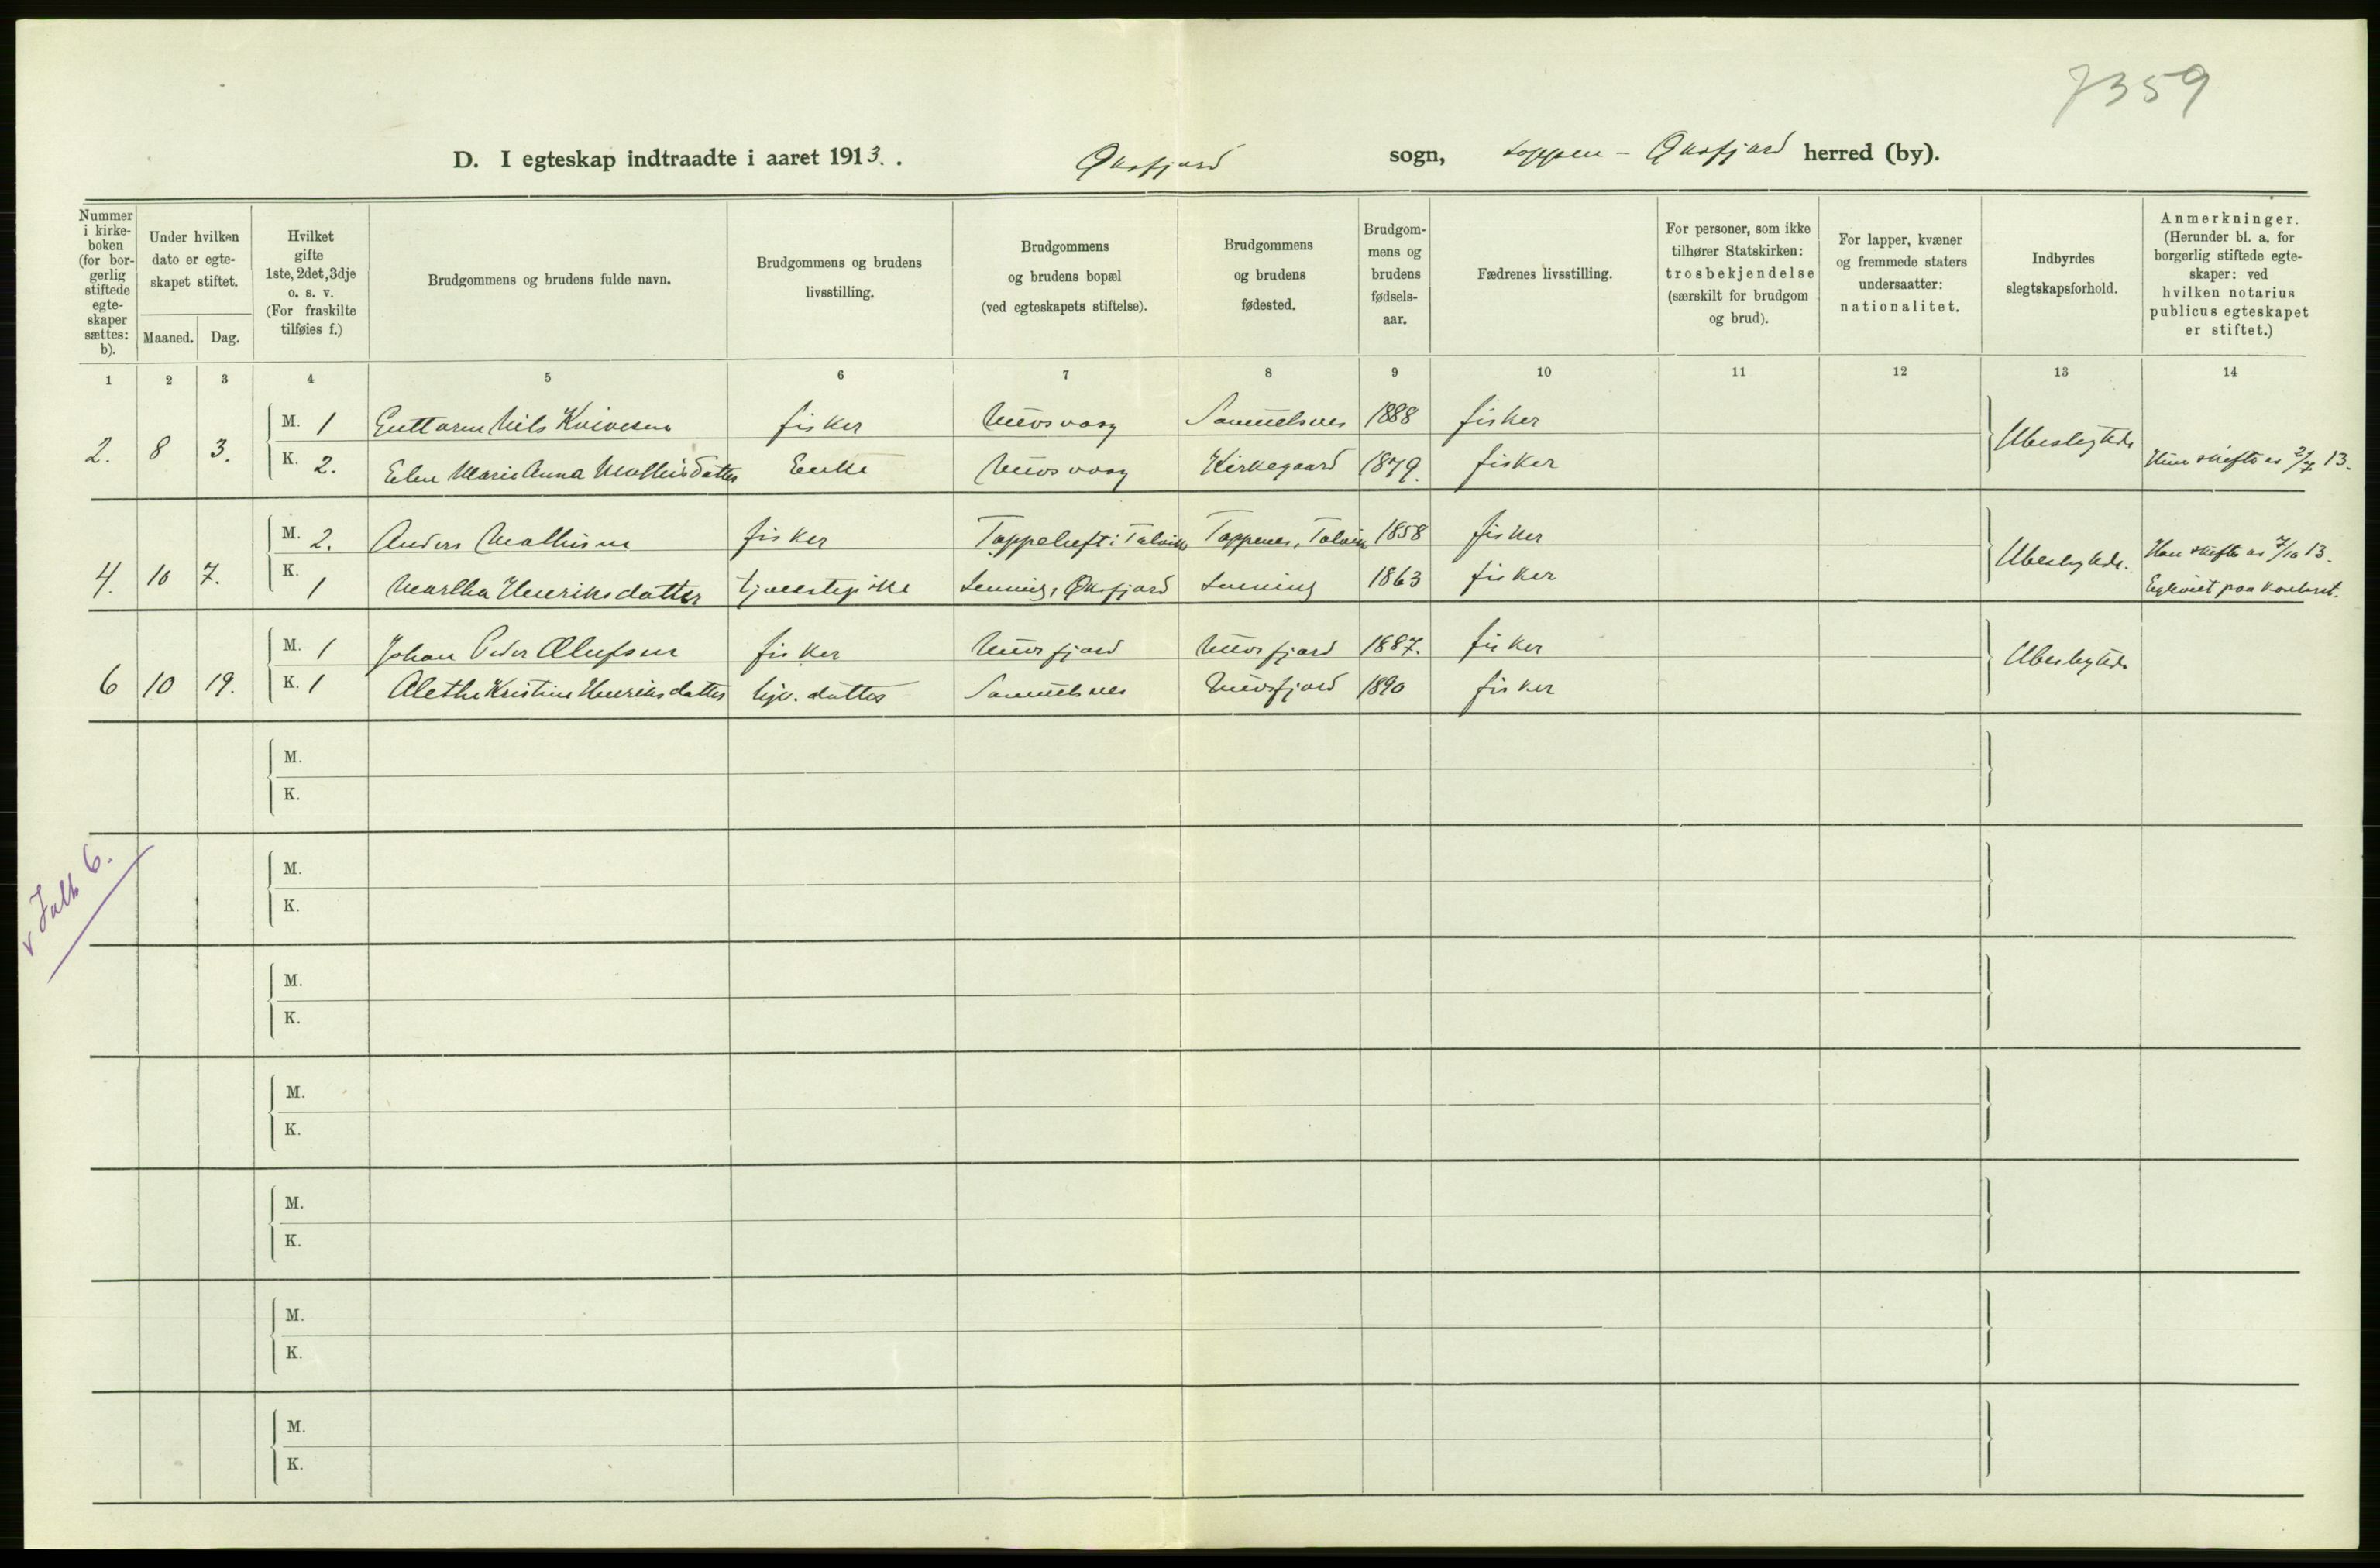 7359
D. I egteskap indtraadte i aaret 1913. . Øksfjord sogn, Loppen - Øksfjord herred (by).
Nummer i kirkeboken (for borgerlig stiftede egteskaper sættes: b).
Under hvilken dato er egteskapet stiftet.
Maaned. Dag.
Hvilket gifte 1ste, 2det, 3dje o. s. v. (For fraskilte tilføies f.)
Brudgommens og brudens fulde navn.
Brudgommens og brudens livsstilling.
Brudgommens og brudens bopæl (ved egteskapets stiftelse).
Brudgommens og brudens fødested.
Brudgommens og brudens fødselsaar.
Fædrenes livsstilling.
For personer, som ikke tilhører Statskirken: trosbekjendelse (særskilt for brudgom og brud).
For lapper, kvæner og fremmede staters undersaatter: nationalitet.
Indbyrdes slegtskapsforhold.
Anmerkninger. (Herunder bl. a. for borgerlig stiftede egteskaper: ved hvilken notarius publicus egteskapet er stiftet.)
1 2 3 4 5 6 7 8 9 10 11 12 13 14
2. 8 3. M. 1 Guttorm Nils fisker Samuelsnes 1888 fisker Ubeslegtede
K. 2. Elen Marie Anna Mathisdatter Enke Kirkegaard 1879. fisker Hun skiftet 2/7 13.
4. 10 7. M. 2. Anders Mathisen fisker Talvik Toppenes, Talvik 1858 fisker Ubeslegtede. Han 7/10 13.
K. 1 Martha Henriksdatter tjenestepike Øksfjord 1863 fisker Egteviet paa kontoret.
6 10 19. M. 1 Johan Peder Olufsen fisker Nuvsfjord Nuvsfjord 1887. fisker Ubeslegtede
K. 1 Alethe Kristine Henriksdatter hjv. datter Samuelsnes Nuvsfjord 1890 fisker
M.
K.
M.
K.
v Talt 6.
M.
K.
M.
K.
M.
K.
M.
K.
M.
K.